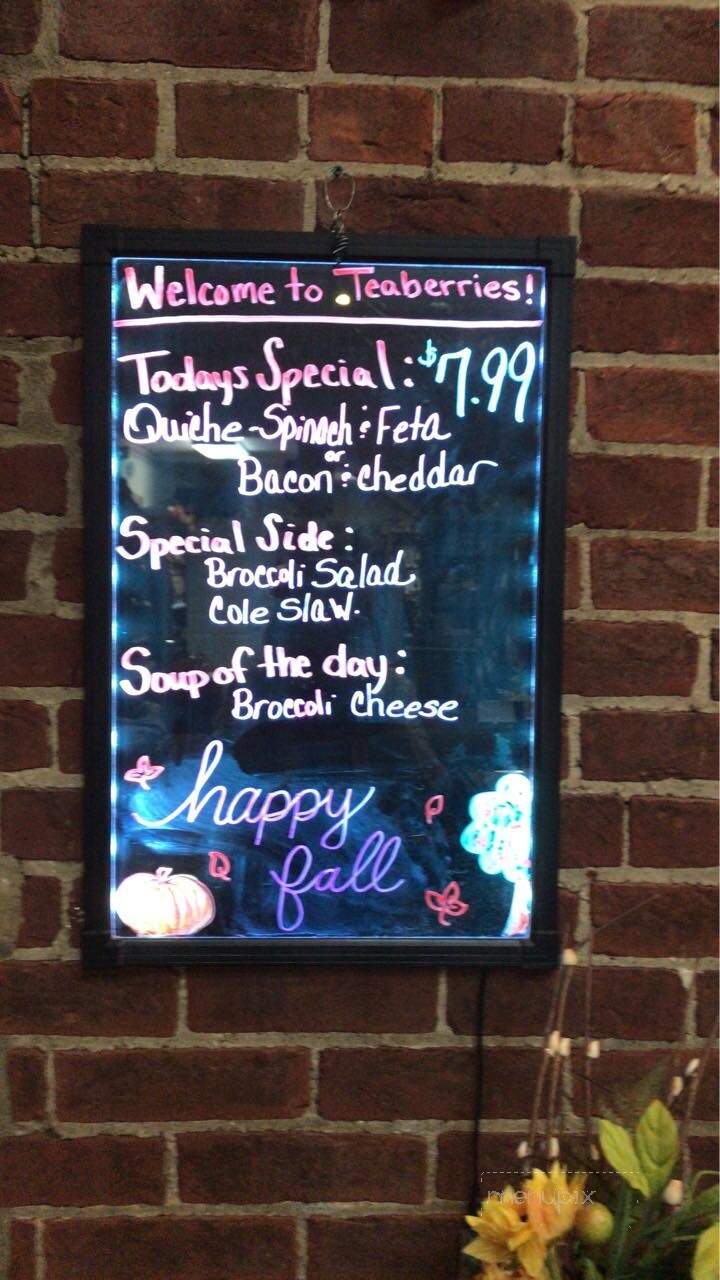 Welcome to Teaberries!
Todays Special: $7.99
Quiche - Spinach & Feta
or
Bacon & cheddar
Special Side:
Broccoli Salad
Cole Slaw.
Soup of the day:
Broccoli Cheese
happy
fall
menupix